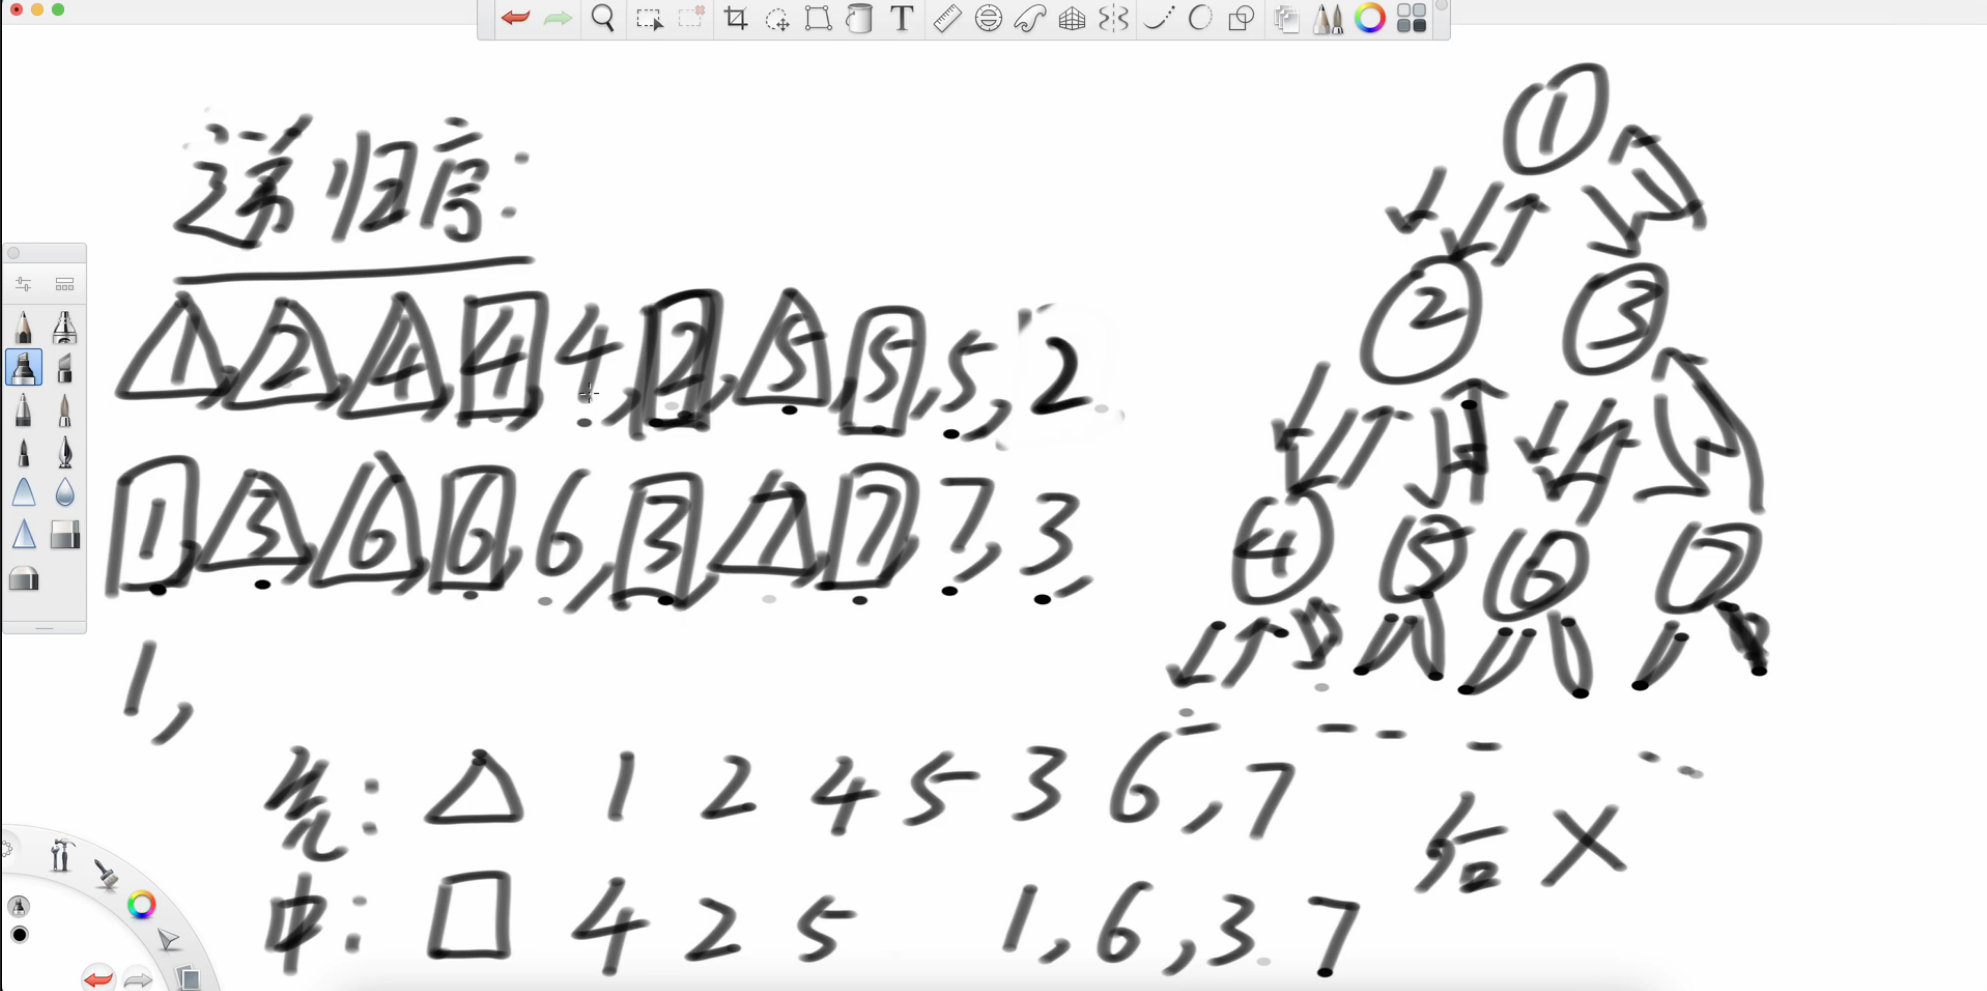 递归序:
1, 2, 4, 4, 4, 2, 5, 5, 5, 2
1, 3, 6, 6, 6, 3, 7, 7, 7, 3,
1,
先: △ 1 2 4 5 3 6, 7
中: □ 4 2 5 1, 6, 3 7
后 X
1
2 3
4 5 6 7
T